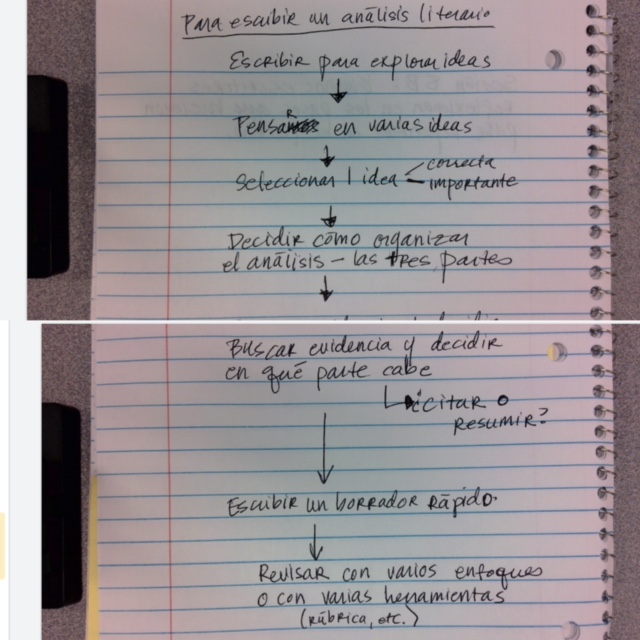 Para escribir un análisis literario
Escribir para explorar ideas
Pensar en varias ideas
Seleccionar 1 idea
correcta
importante
Decidir cómo organizar
el análisis - las tres partes
Buscar evidencia y decidir
en qué parte cabe
¿citar o
resumir?
Escribir un borrador rápido.
Revisar con varios enfoques
o con varias herramientas
(rúbrica, etc.)